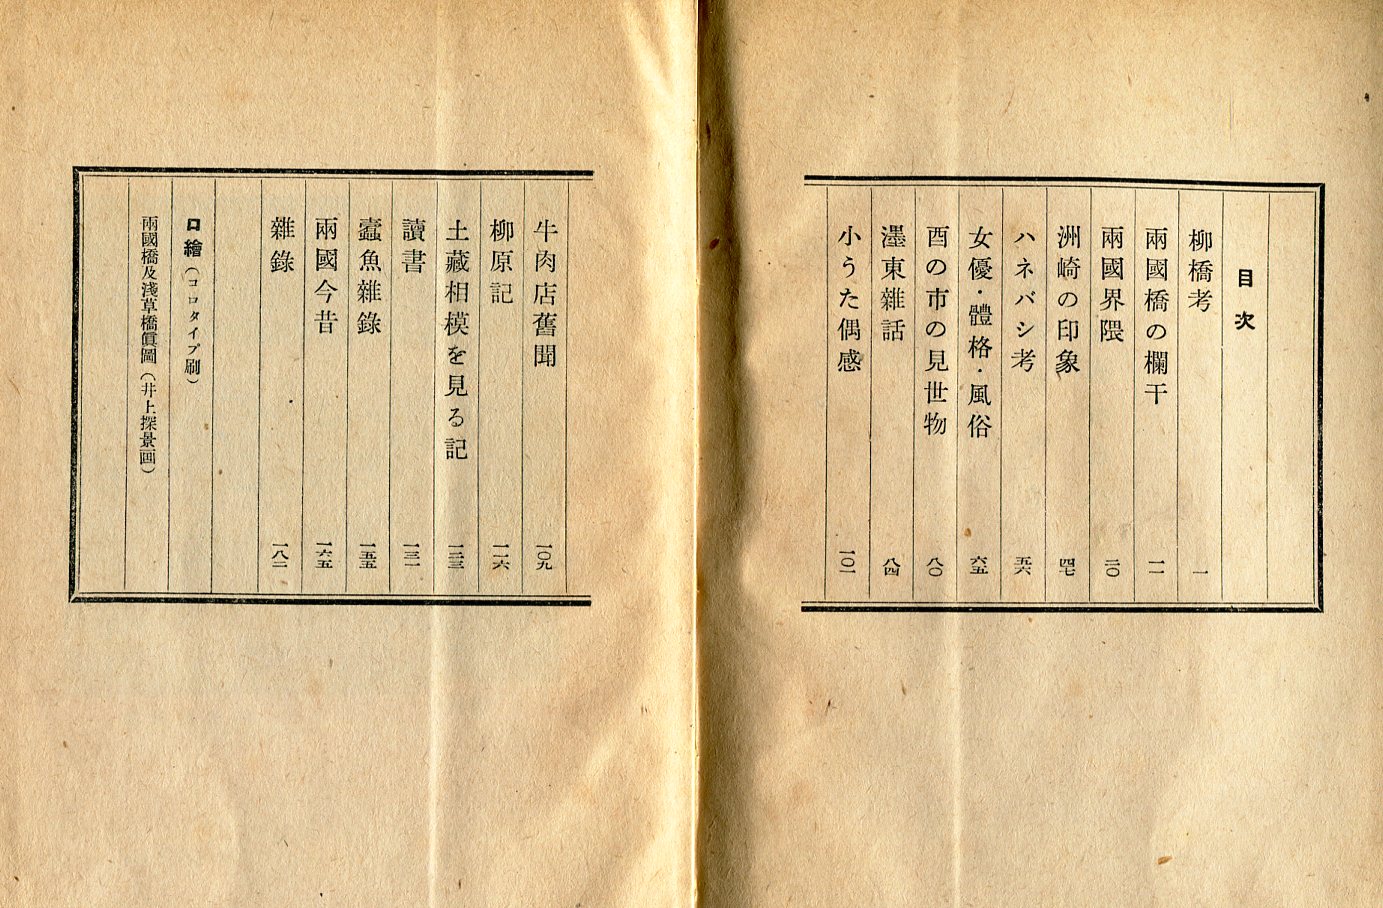 目次
柳橋考 一
兩國橋の欄干 一一
兩國界隈 二〇
洲崎の印象 四七
ハネバシ考 五六
女優・體格・風俗 六五
酉の市の見世物 八〇
濹東雜話 八四
小うた偶感 一〇一
牛肉店舊聞 一〇九
柳原記 一一六
土藏相模を見る記 一二三
讀書 一三一
蠹魚雜錄 一五五
兩國今昔 一六五
雜錄 一八二
口繪（コロタイプ刷）
兩國橋及淺草橋眞圖（井上探景画）